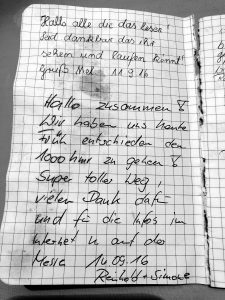 Hallo alle die das lesen!
Seid dankbar das ihr
sehen und laufen könnt!
Gruß Mel. 11.9.16
Hallo zusammen!
Wir haben uns heute
Früh entschieden den
1000 hm zu gehen!
Super toller Weg,
vielen Dank dafür
und für die Infos im
Internet u auf der
Messe 14.09.16
Reinhold + Simone